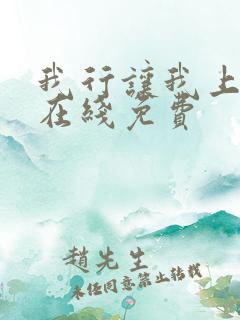 我行讓我上
在綫免費
趙先生
未经同意禁止转载